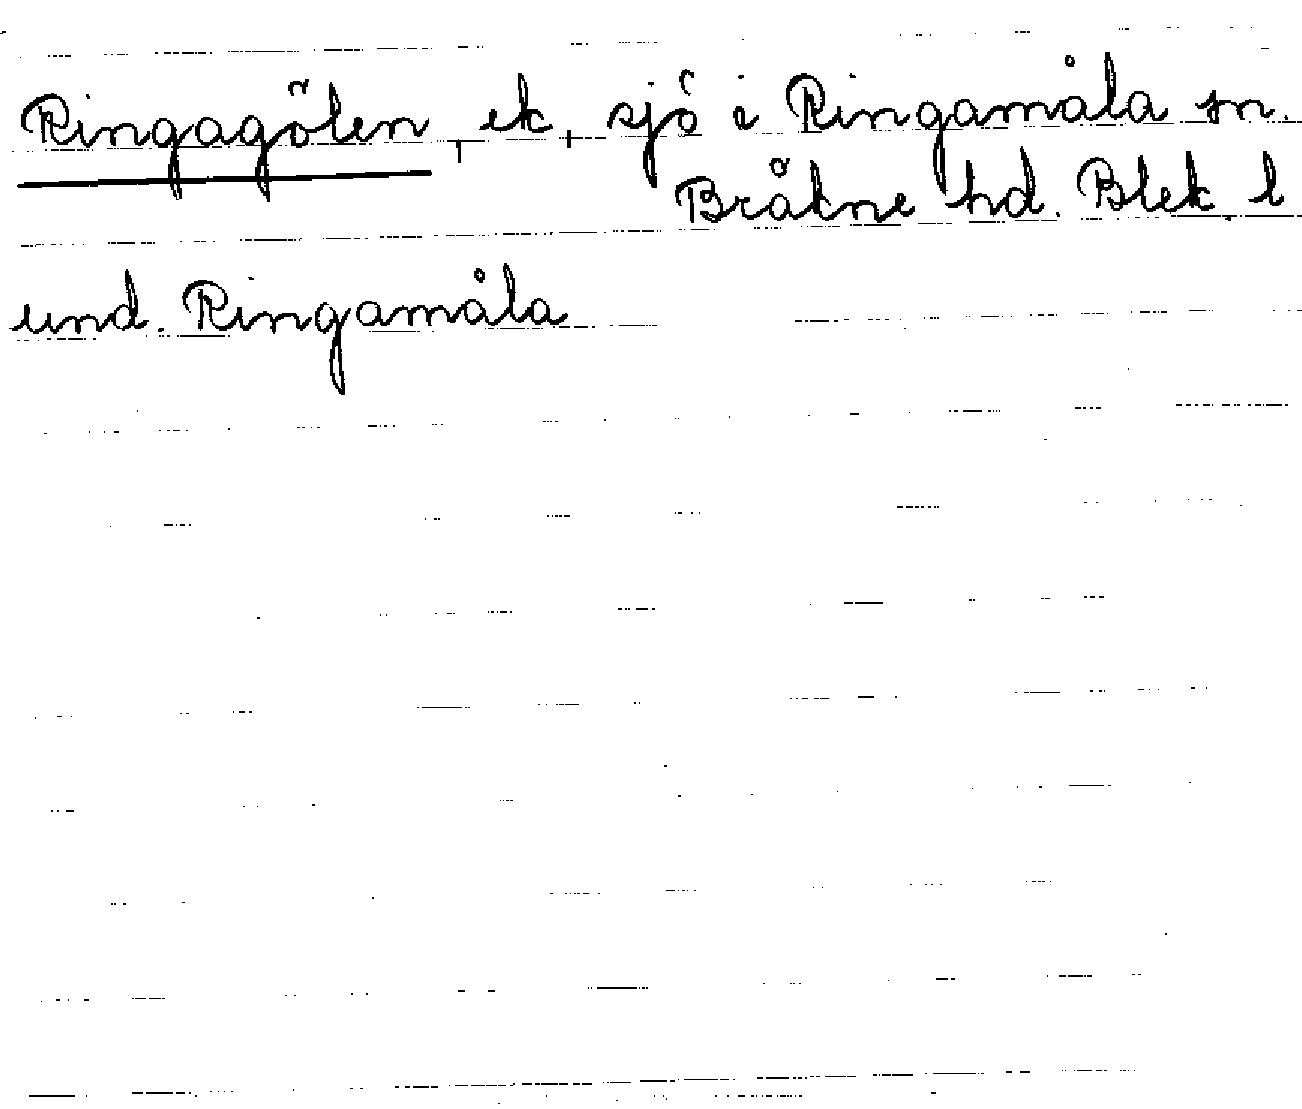 Ringagölen, ek, sjö i Ringamåla sn.
Bräkne hd. Blek. l
und. Ringamåla